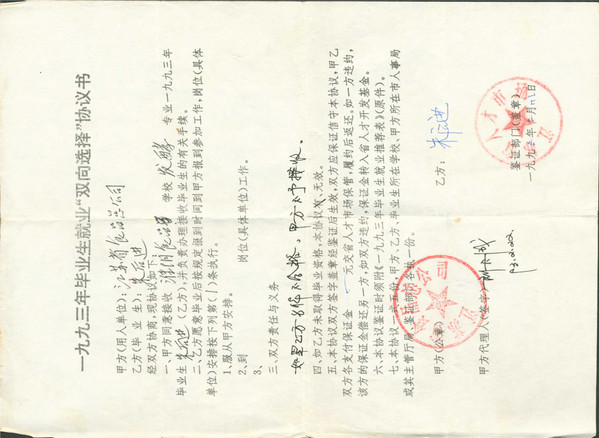 一九九三年毕业生就业“双向选择”协议书
甲方(用人单位):
乙方(毕业生):
经双方协商,现协议如下:
一、甲方同意接收 学校 专业一九九三年
毕业生 (乙方),并负责办理接收毕业生的有关手续。
二、乙方愿意毕业后按规定报到时间到甲方报到参加工作,岗位(具体
单位)安排按下列第(1)条执行。
1、服从甲方安排。
2、到 岗位(具体单位)工作。
3、
三、双方责任与义务
如果乙方 不合格,甲方
四、如乙方未取得毕业资格,本协议 无效。
五、本协议双方签字盖章经鉴证后生效,双方应保证信守本协议,甲乙
双方各支付保证金 元交省人才市场保管,履约后返还,如一方违约,
该方的保证金偿还另一方,如双方违约,保证金转入省人才开发基金。
六、本协议鉴证时须附《一九九三年毕业生就业推荐表》(原件)。
七、本协议一式五份,甲方、乙方、毕业生所在学校、甲方所在市人事局
或其主管厅局、鉴证部门各执一份。
甲方(公章) 乙方:
甲方代理人(签字) 鉴证部门(盖章)
一九九三年 月 日